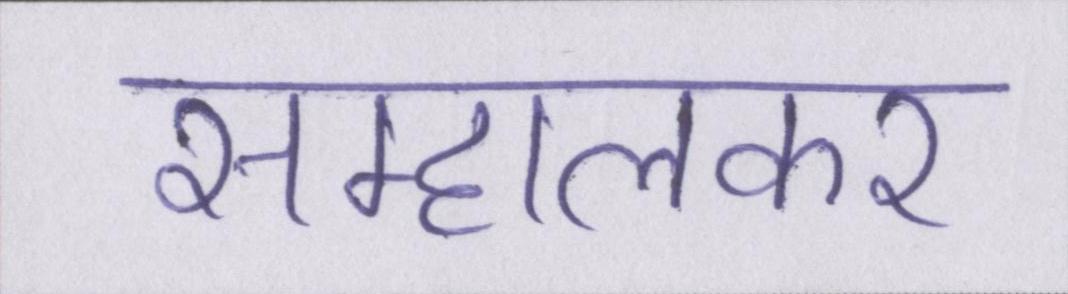 सम्हालकर